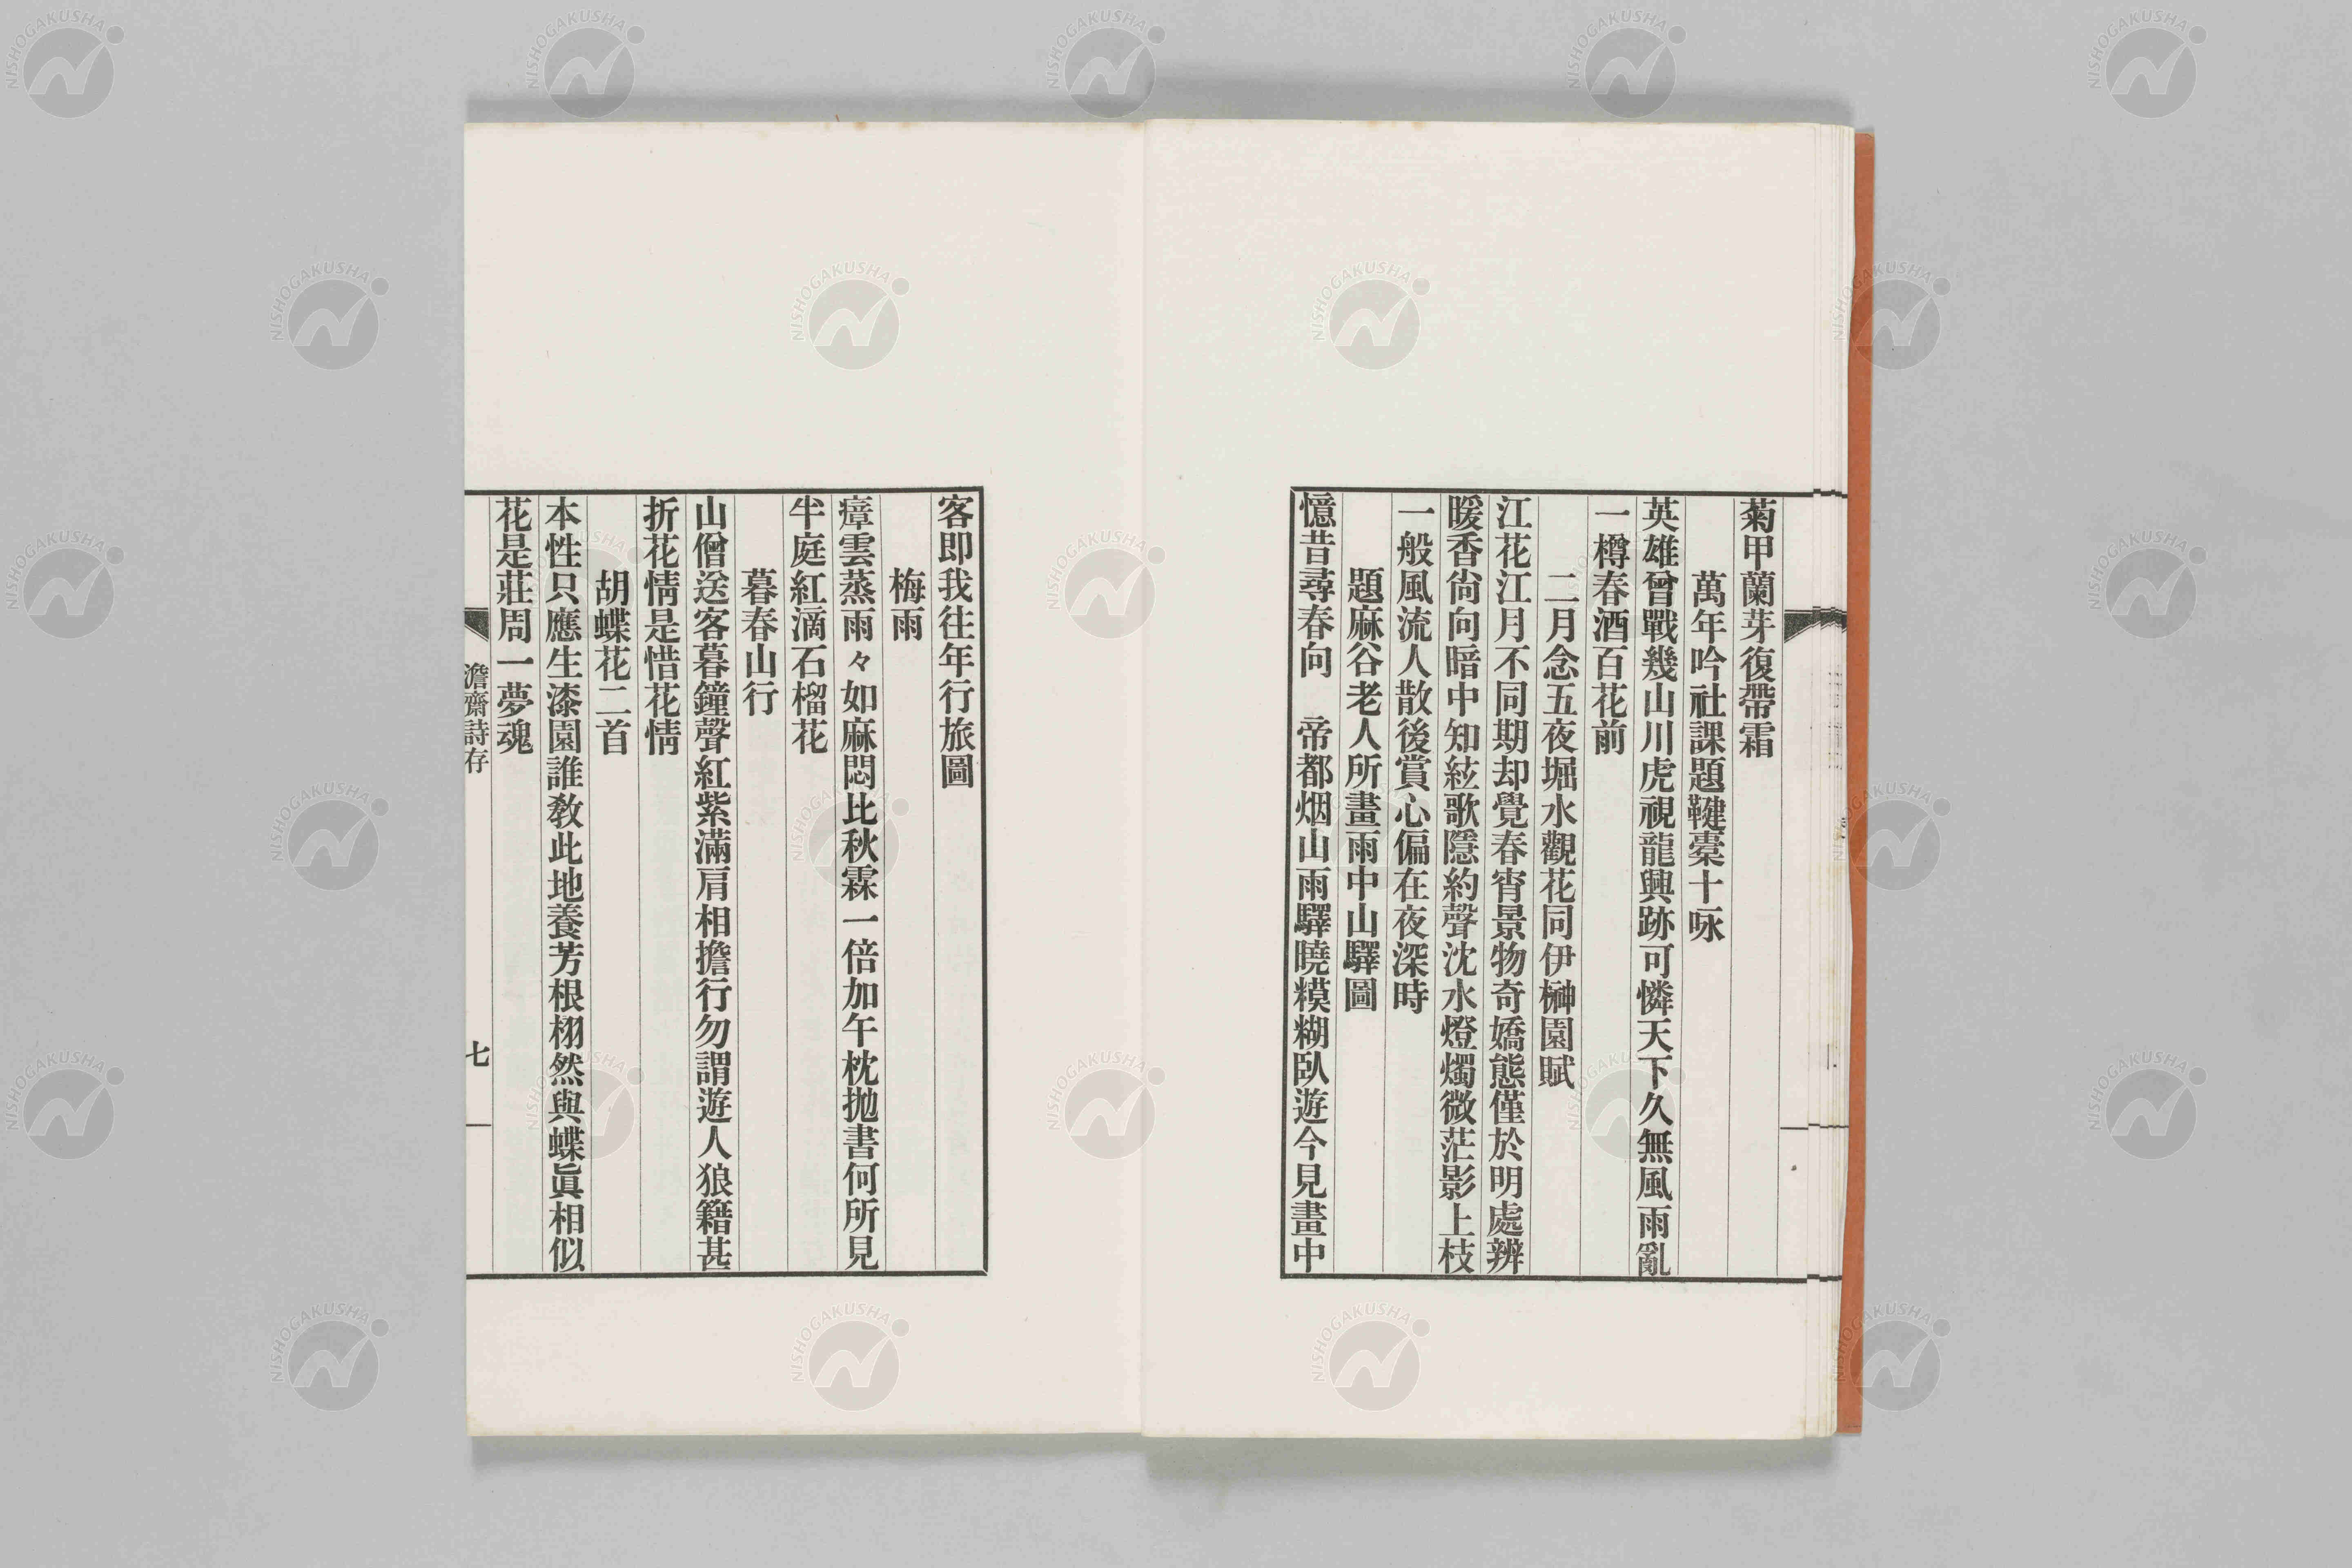 菊甲蘭芽復帶霜
萬年吟社課題鞬櫜十咏
英雄曾戰幾山川虎視龍興跡可憐天下久無風雨亂
一樽春酒百花前
二月念五夜堀水觀花同伊榊園賦
江花江月不同期却覺春宵景物奇嬌態僅於明處辨
暖香尙向暗中知絃歌隱約聲沈水燈燭微茫影上枝
一般風流人散後賞心偏在夜深時
題麻谷老人所畫雨中山驛圖
憶昔尋春向　帝都烟山雨驛曉糢糊臥遊今見畫中
客即我往年行旅圖
梅雨
瘴雲蒸雨々如麻悶比秋霖一倍加午枕拋書何所見
半庭紅滴石榴花
暮春山行
山僧送客暮鐘聲紅紫滿肩相擔行勿謂遊人狼籍甚
折花情是惜花情
胡蝶花二首
本性只應生漆園誰敎此地養芳根栩然與蝶眞相似
花是莊周一夢魂
澹齋詩存
七
NISHOGAKUSHA